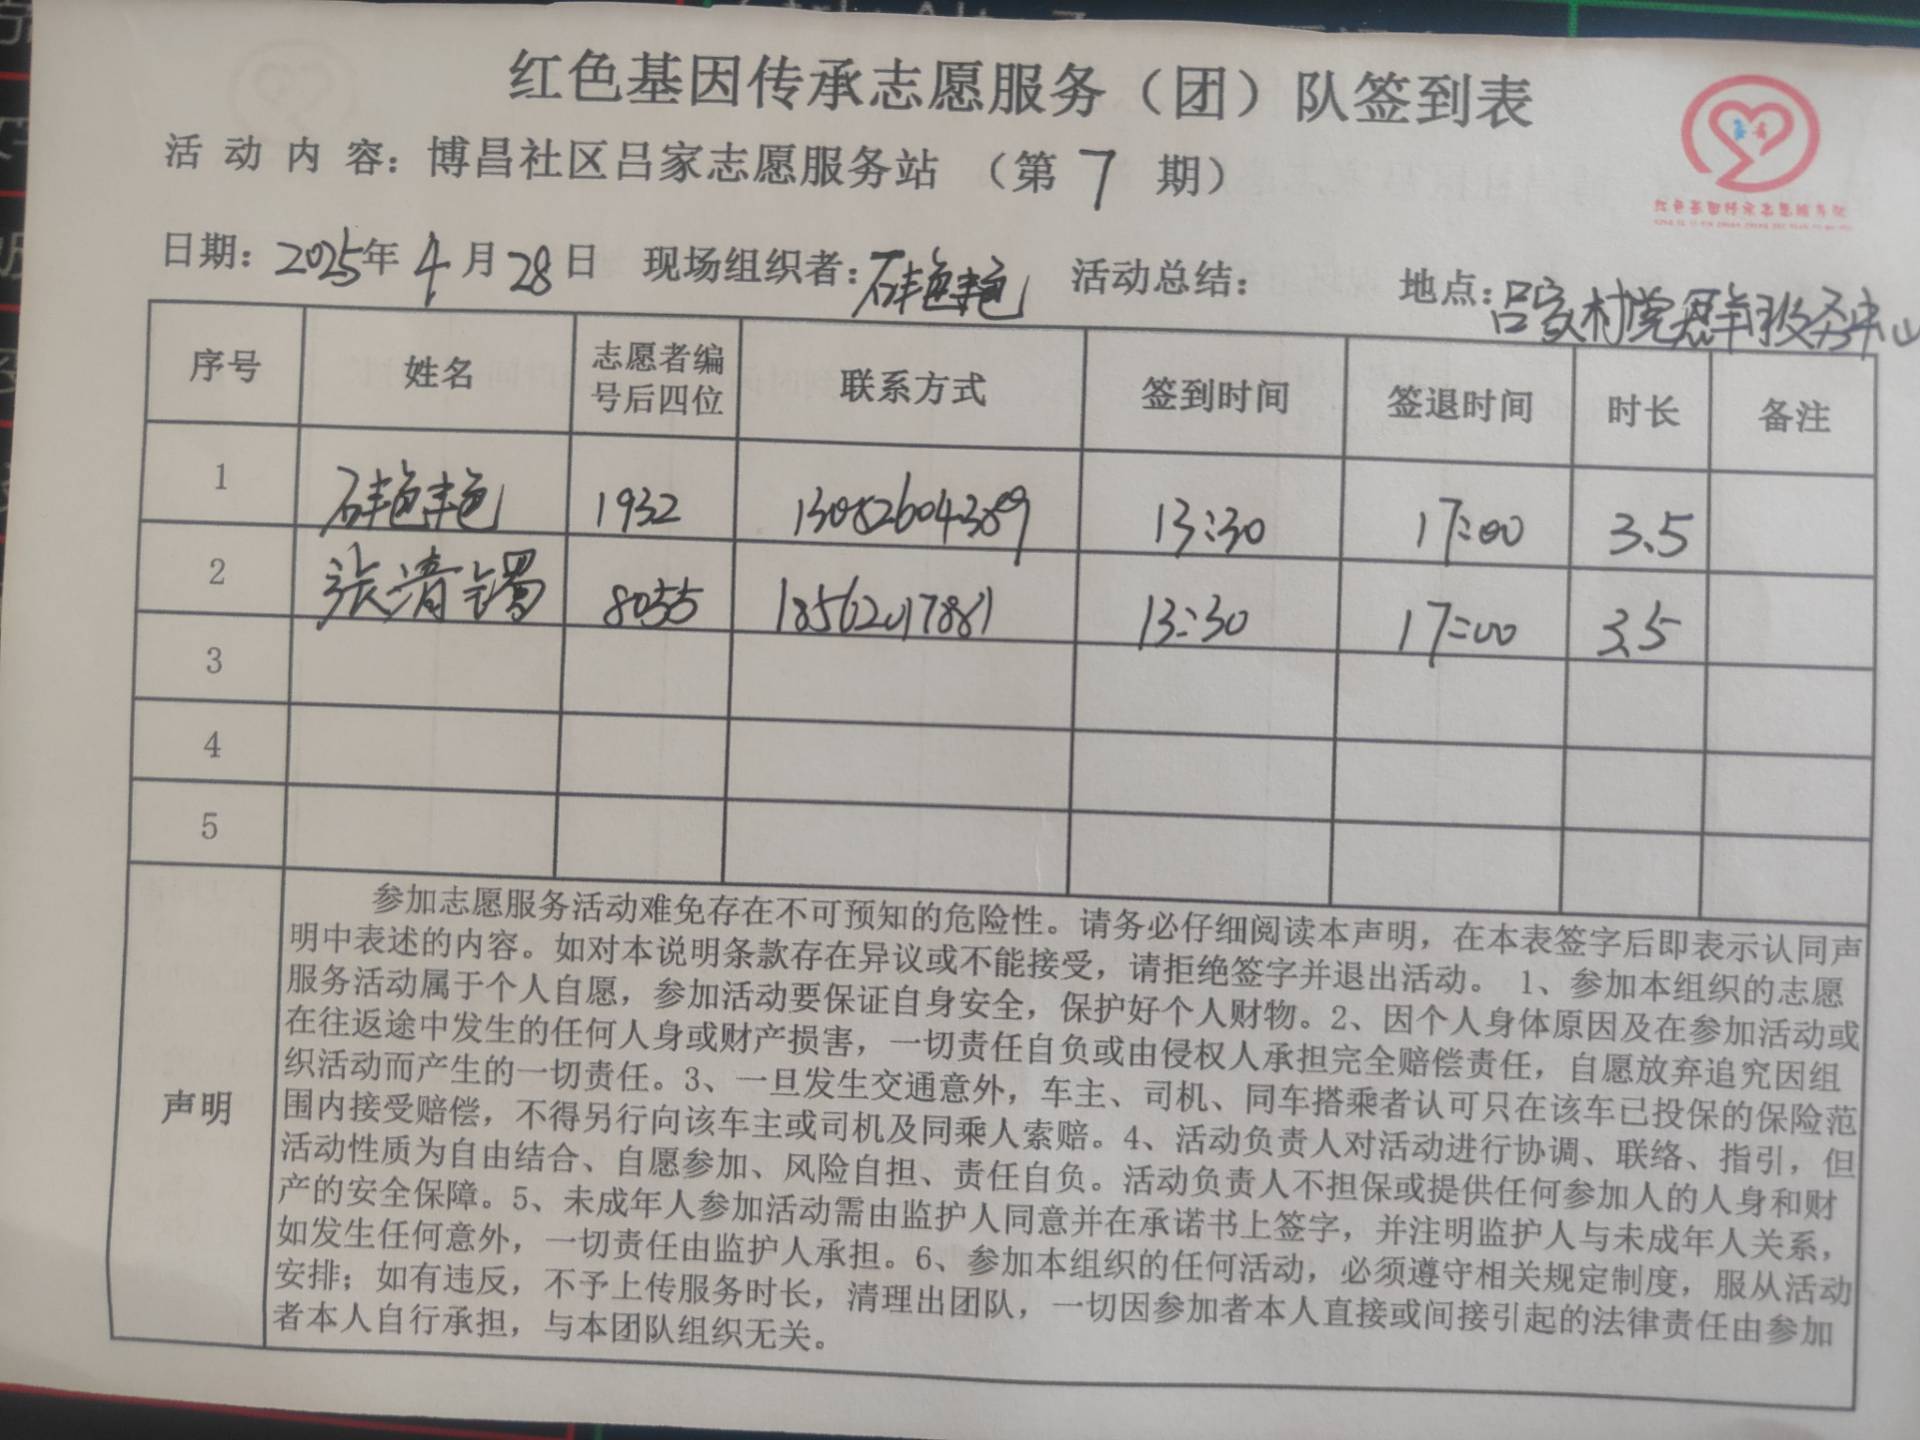 红色基因传承志愿服务（团）队签到表
活动内容：博昌社区吕家志愿服务站（第7期）
日期：2025年4月28日 现场组织者：石艳艳 活动总结： 地点：吕家村党群服务中心
序号 姓名 志愿者编号后四位 联系方式 签到时间 签退时间 时长 备注
1 石艳艳 1932 13082604389 13:30 17:00 3.5
2 张清 8055 18562017881 13:30 17:00 3.5
3
4
5
声明
参加志愿服务活动难免存在不可预知的危险性。请务必仔细阅读本声明，在本表签字后即表示认同声
明中表述的内容。如对本说明条款存在异议或不能接受，请拒绝签字并退出活动。 1、参加本组织的志愿
服务活动属于个人自愿，参加活动要保证自身安全，保护好个人财物。2、因个人身体原因及在参加活动或
在往返途中发生的任何人身或财产损害，一切责任自负或由侵权人承担完全赔偿责任，自愿放弃追究因组
织活动而产生的一切责任。3、一旦发生交通意外，车主、司机、同车搭乘者认可只在该车已投保的保险范
围内接受赔偿，不得另行向该车主或司机及同乘人索赔。4、活动负责人对活动进行协调、联络、指引，但
活动性质为自由结合、自愿参加、风险自担、责任自负。活动负责人不担保或提供任何参加人的人身和财
产的安全保障。5、未成年人参加活动需由监护人同意并在承诺书上签字，并注明监护人与未成年人关系，
如发生任何意外，一切责任由监护人承担。6、参加本组织的任何活动，必须遵守相关规定制度，服从活动
安排；如有违反，不予上传服务时长，清理出团队，一切因参加者本人直接或间接引起的法律责任由参加
者本人自行承担，与本团队组织无关。